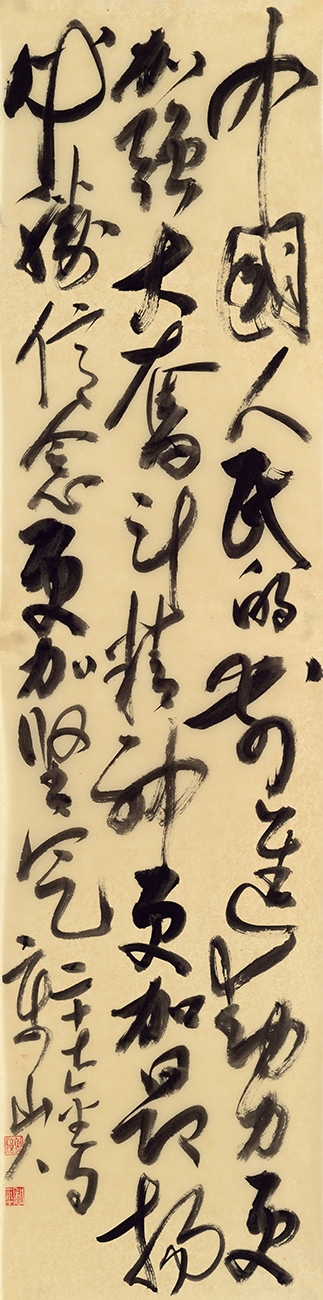 中國人民的前進動力更
加強大奮斗精神更加昂揚
必勝信念更加堅定
二十大金句
山人